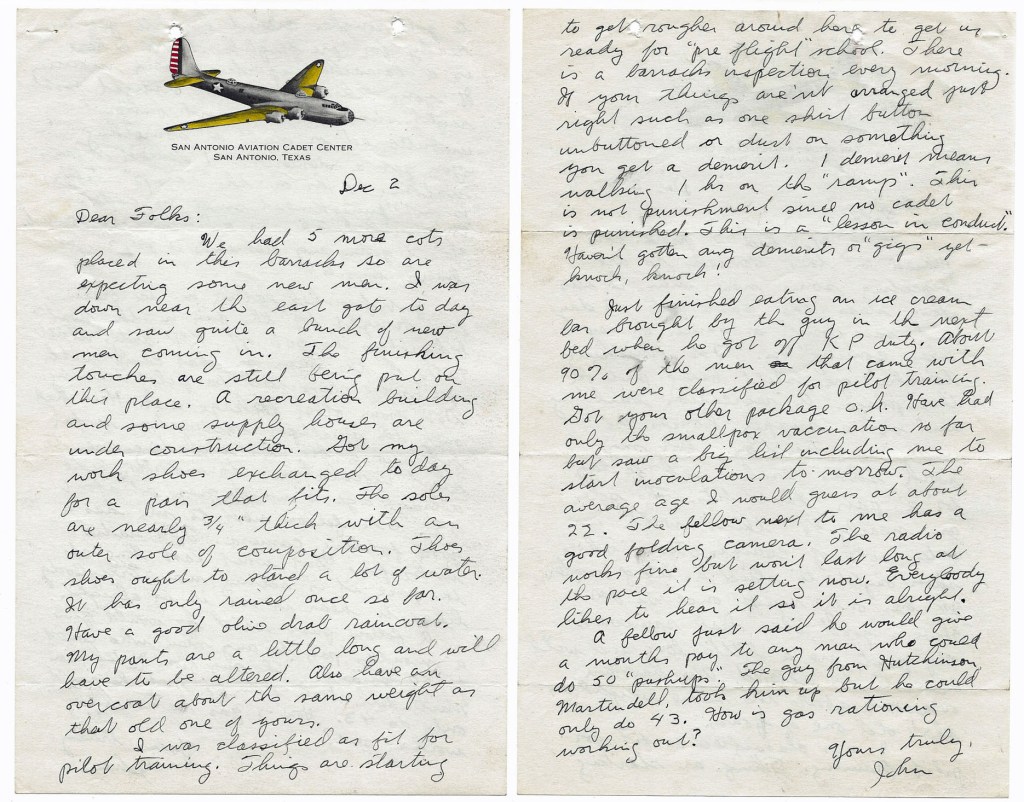 San Antonio Aviation Cadet Center
San Antonio, Texas
Dec 2
Dear Folks:
We had 5 more cots
placed in this barracks so are
expecting some new men. I was
down near the east gate to day
and saw quite a bunch of new
men coming in. The finishing
touches are still being put on
this place. A recreation building
and some supply houses are
under construction. Got my
work shoes exchanged to day
for a pair that fits. The soles
are nearly 3/4" thick with an
outer sole of composition. Those
shoes ought to stand a lot of water.
It has only rained once so far.
Have a good olive drab raincoat.
My pants are a little long and will
have to be altered. Also have an
overcoat about the same weight as
that old one of yours.
I was classified as fit for
pilot training. Things are starting
to get rougher around here to get us
ready for "pre flight" school. There
is a barracks inspection every morning.
If your things are'nt arranged just
right such as one shirt button
unbuttoned or dust on something
you get a demerit. 1 demerit means
walking 1 hr on the "ramp". This
is not punishment since no cadet
is punished. This is a "lesson in conduct."
Haven't gotten any demerits or "gigs" yet -
knock, knock!
Just finished eating an ice cream
bar brought by the guy in the next
bed when he got off KP duty. About
90% of the men that came with
me were classified for pilot training.
Got your other package o.k. Have had
only the smallpox vaccination so far
but saw a big list including me to
start inoculations to-morrow. The
average age I would guess at about
22. The fellow next to me has a
good folding camera. The radio
works fine but won't last long at
the pace it is setting now. Everybody
likes to hear it so it is alright.
A fellow just said he would give
a months pay to any man who could
do 50 "pushups". The guy from Hutchinson,
Martindell, took him up but he could
only do 43. How is gas rationing
working out?
Yours truly,
John